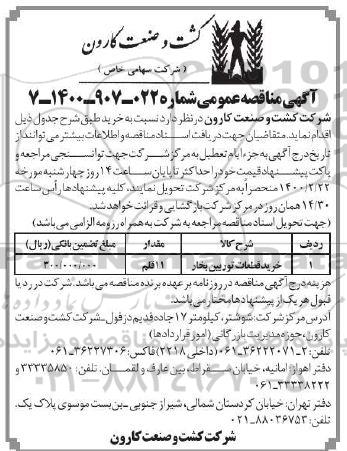 کشت و صنعت کارون
( شرکت سهامی خاص )
آگهی مناقصه عمومی شماره ۰۲۲-۹۰۷-۱۴۰۰-۷
شرکت کشت و صنعت کارون در نظر دارد نسبت به خرید طبق شرح جدول ذیل
اقدام نماید. متقاضیان جهت دریافت اسناد مناقصه و اطلاعات بیشتر می توانند از
تاریخ درج آگهی به جز ایام تعطیل به مرکز شرکت جهت توانسنجی مراجعه و
پاکت پیشنهاد قیمت خود را حداکثر تا پایان ساعت ۱۴ روز چهارشنبه مورخه
۱۴۰۰/۲/۲۲ منحصراً به مرکز شرکت تحویل نمایند. کلیه پیشنهادها رأس ساعت
۱۴/۳۰ همان روز در مرکز شرکت بازگشایی و قرائت خواهد شد.
(جهت تحویل اسناد مناقصه مراجعه به شرکت به همراه رزومه الزامی می باشد)
ردیف شرح کالا مقدار مبلغ تضمین بانکی (ریال)
۱ خرید قطعات توربین بخار ۱۱ قلم ۳۰۰/۰۰۰/۰۰۰
هزینه درج آگهی مناقصه در روزنامه بر عهده برنده مناقصه می باشد. شرکت در رد یا
قبول هر یک از پیشنهادها مختار می باشد.
آدرس مرکز شرکت: شوشتر، کیلومتر ۱۷ جاده قدیم دزفول- شرکت کشت و صنعت
کارون، حوزه مدیریت بازرگانی (امور قراردادها)
تلفن: ۲-۳۶۲۲۲۰۷۱-۰۶۱ (داخلی ۲۲۱۸) فاکس: ۳۶۲۳۷۳۰۶-۰۶۱
دفتر اهواز: امانیه، خیابان سقراط، بین عارف و لقمان. تلفن: ۳۳۳۳۵۸۵۰ و
۳۳۳۳۸۲۲۲-۰۶۱
دفتر تهران: خیابان کردستان شمالی، شیراز جنوبی- بن بست موسوی پلاک یک.
تلفن: ۸۸۰۳۶۷۵۳-۰۲۱
شرکت کشت و صنعت کارون